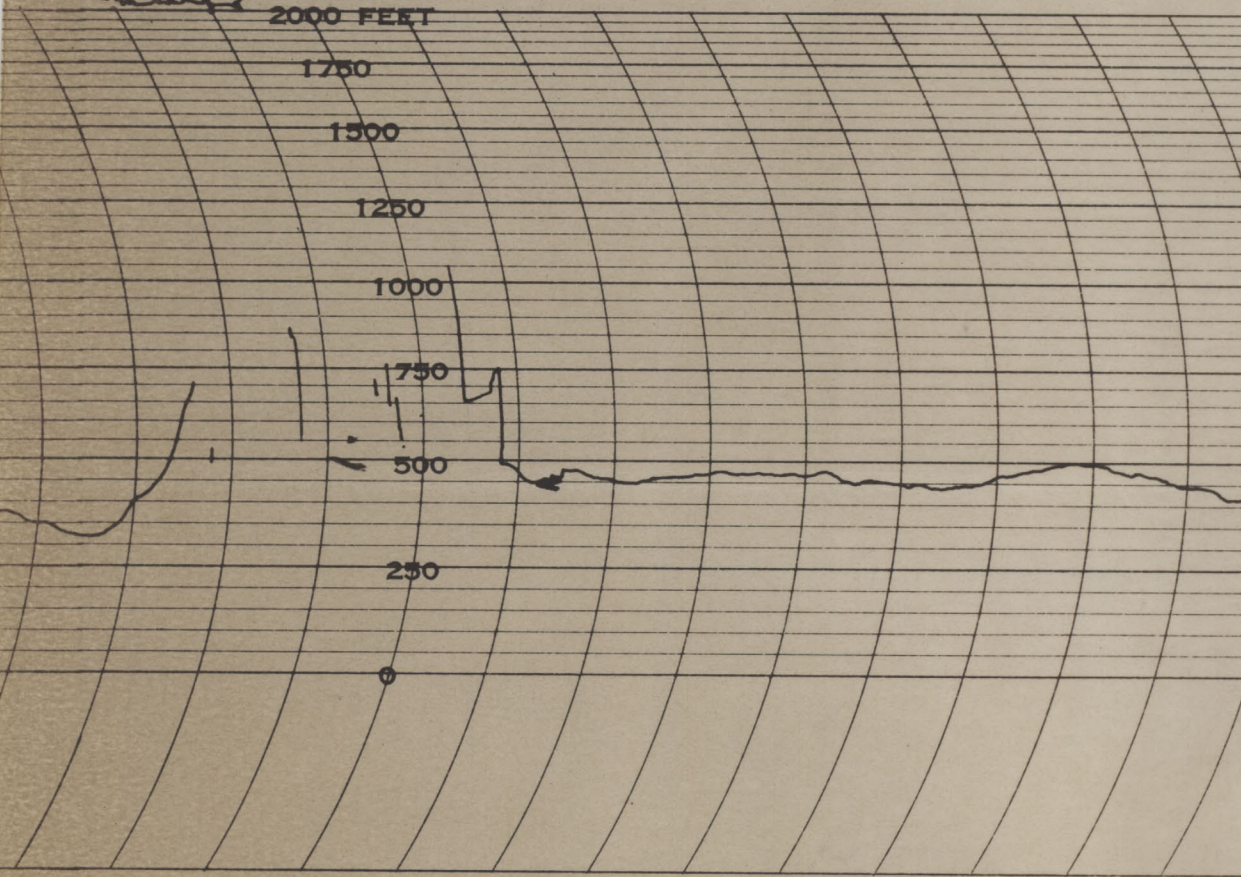 2000 FEET
1750
1500
1250
1000
750
500
250
0